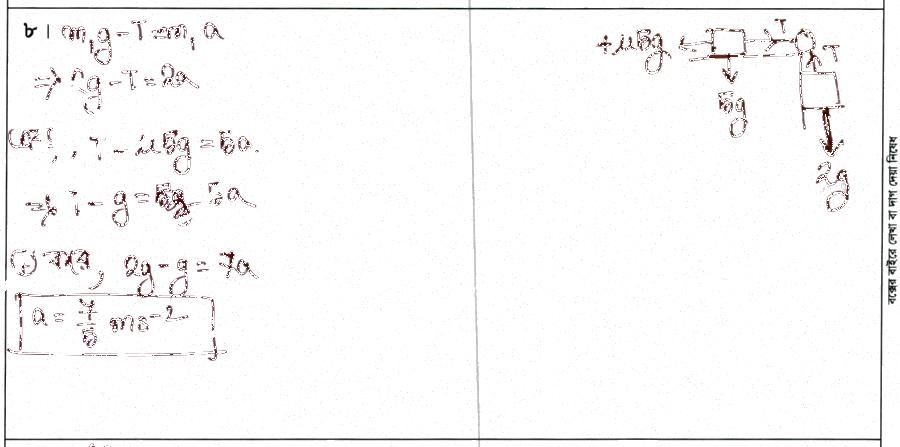 ৮। m₁g - T = m₁a
⇒ 2g - T = 2a
T - μ5g = 5a.
⇒ T - g = 5a
করে, 2g - g = 7a
a = 7/5 ms⁻²
μ5g
T
T
5g
2g
বক্সের বাইরে লেখা বা দাগ দেয়া নিষেধ